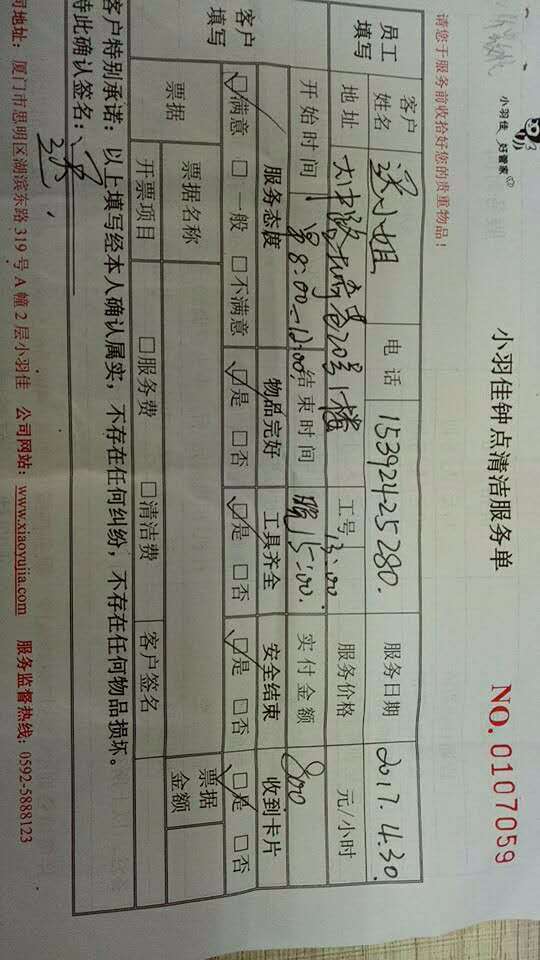 小羽佳 好管家
小羽佳钟点清洁服务单 NO.0107059
请您于服务前收拾好您的贵重物品！
员工填写 客户姓名 小姐 电话 15392425280. 服务日期 2017.4.30.
地址 20号1楼 工号 服务价格 元/小时
开始时间 早8:00—12:00 结束时间 13:00 15:00. 实付金额 800
客户填写 服务态度 物品完好 工具齐全 安全结束 收到卡片
☑满意 □一般 □不满意 ☑是 □否 ☑是 □否 ☑是 □否 ☑是 □否
票据 票据名称 票据金额
开票项目 □服务费 □清洁费 客户签名
客户特别承诺：以上填写经本人确认属实，不存在任何纠纷，不存在任何物品损坏。
特此确认签名：
公司地址：厦门市思明区湖滨东路319号A幢2层小羽佳 公司网站：www.xiaoyujia.com 服务监督热线：0592-5888123